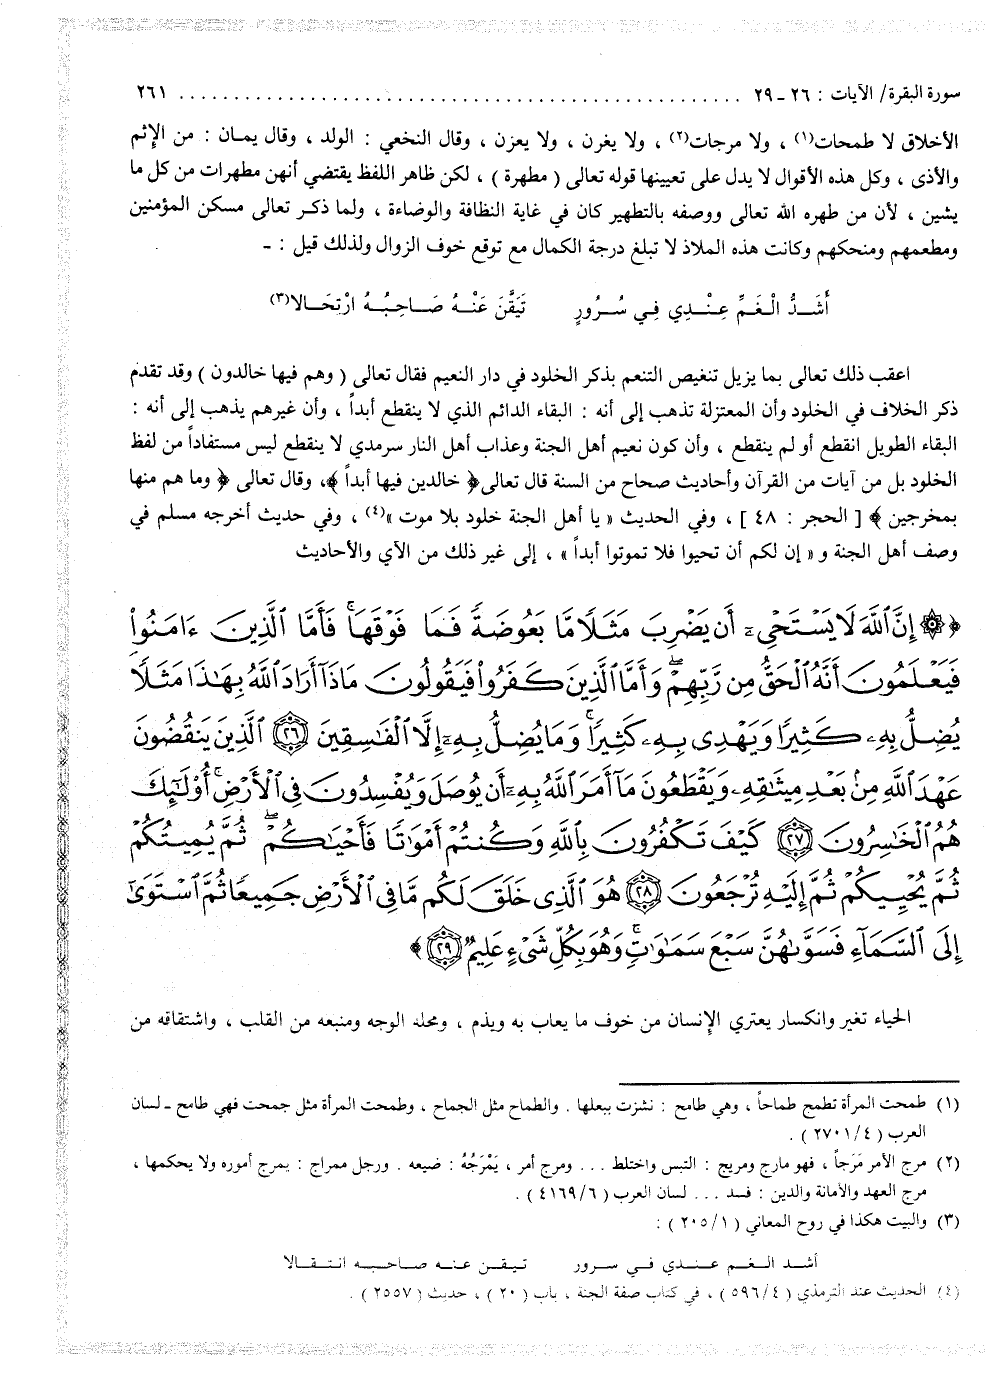 سورة البقرة/ الآيات : ٢٦ - ٢٩ ................................................ ٢٦١
الأخلاق لا طمحات(١) ، ولا مرجات(٢) ، ولا يغرن ، ولا يعزن ، وقال النخعي : الولد ، وقال يمان : من الإثم
والأذى ، وكل هذه الأقوال لا يدل على تعيينها قوله تعالى ( مطهرة ) ، لكن ظاهر اللفظ يقتضي أنهن مطهرات من كل ما
يشين ، لأن من طهره الله تعالى ووصفه بالتطهير كان في غاية النظافة والوضاءة ، ولما ذكر تعالى مسكن المؤمنين
ومطعمهم ومنحكهم وكانت هذه الملاذ لا تبلغ درجة الكمال مع توقع خوف الزوال ولذلك قيل : -
أَشَدُّ الْغَمِّ عِنْدِي فِي سُرُورٍ تَيَقَّنَ عَنْهُ صَاحِبُهُ ارْتِحَالا(٣)
اعقب ذلك تعالى بما يزيل تنغيص التنعم بذكر الخلود في دار النعيم فقال تعالى ( وهم فيها خالدون ) وقد تقدم
ذكر الخلاف في الخلود وأن المعتزلة تذهب إلى أنه : البقاء الدائم الذي لا ينقطع أبداً ، وأن غيرهم يذهب إلى أنه :
البقاء الطويل انقطع أو لم ينقطع ، وأن كون نعيم أهل الجنة وعذاب أهل النار سرمدي لا ينقطع ليس مستفاداً من لفظ
الخلود بل من آيات من القرآن وأحاديث صحاح من السنة قال تعالى ﴿ خالدين فيها أبداً ﴾، وقال تعالى ﴿ وما هم منها
بمخرجين ﴾ [ الحجر : ٤٨ ] ، وفي الحديث « يا أهل الجنة خلود بلا موت »(٤) ، وفي حديث أخرجه مسلم في
وصف أهل الجنة و « إن لكم أن تحيوا فلا تموتوا أبداً » ، إلى غير ذلك من الآي والأحاديث
﴿ ۞ إِنَّ ٱللَّهَ لَا يَسْتَحْىِۦٓ أَن يَضْرِبَ مَثَلًا مَّا بَعُوضَةً فَمَا فَوْقَهَا ۚ فَأَمَّا ٱلَّذِينَ ءَامَنُوا۟
فَيَعْلَمُونَ أَنَّهُ ٱلْحَقُّ مِن رَّبِّهِمْ ۖ وَأَمَّا ٱلَّذِينَ كَفَرُوا۟ فَيَقُولُونَ مَاذَآ أَرَادَ ٱللَّهُ بِهَـٰذَا مَثَلًا ۘ
يُضِلُّ بِهِۦ كَثِيرًا وَيَهْدِى بِهِۦ كَثِيرًا ۚ وَمَا يُضِلُّ بِهِۦٓ إِلَّا ٱلْفَـٰسِقِينَ ﴿٢٦﴾ ٱلَّذِينَ يَنقُضُونَ
عَهْدَ ٱللَّهِ مِنۢ بَعْدِ مِيثَـٰقِهِۦ وَيَقْطَعُونَ مَآ أَمَرَ ٱللَّهُ بِهِۦٓ أَن يُوصَلَ وَيُفْسِدُونَ فِى ٱلْأَرْضِ ۚ أُو۟لَـٰٓئِكَ
هُمُ ٱلْخَـٰسِرُونَ ﴿٢٧﴾ كَيْفَ تَكْفُرُونَ بِٱللَّهِ وَكُنتُمْ أَمْوَٰتًا فَأَحْيَـٰكُمْ ۖ ثُمَّ يُمِيتُكُمْ
ثُمَّ يُحْيِيكُمْ ثُمَّ إِلَيْهِ تُرْجَعُونَ ﴿٢٨﴾ هُوَ ٱلَّذِى خَلَقَ لَكُم مَّا فِى ٱلْأَرْضِ جَمِيعًا ثُمَّ ٱسْتَوَىٰٓ
إِلَى ٱلسَّمَآءِ فَسَوَّىٰهُنَّ سَبْعَ سَمَـٰوَٰتٍ ۚ وَهُوَ بِكُلِّ شَىْءٍ عَلِيمٌ ﴿٢٩﴾ ﴾
الحياء تغير وانكسار يعتري الإنسان من خوف ما يعاب به ويذم ، ومحله الوجه ومنبعه من القلب ، واشتقاقه من
(١) طمحت المرأة تطمح طماحاً ، وهي طامح : نشزت ببعلها . والطماح مثل الجماح ، وطمحت المرأة مثل جمحت فهي طامح - لسان
العرب ( ٤/ ٢٧٠١ ) .
(٢) مرج الأمر مَرَجاً ، فهو مارج ومريج : التبس واختلط ... ومرج أمر ، يَمْرَجُهُ : ضيعه . ورجل ممراج : يمرج أموره ولا يحكمها ،
مرج العهد والأمانة والدين : فسد ... لسان العرب ( ٦/ ٤١٦٩ ) .
(٣) والبيت هكذا في روح المعاني ( ١/ ٢٠٥ ) :
أشد الغم عندي في سرور تيقن عنه صاحبه انتقالا
(٤) الحديث عند الترمذي ( ٤/ ٥٩٦ ) ، في كتاب صفة الجنة ، باب ( ٢٠ ) ، حديث ( ٢٥٥٧ ) .